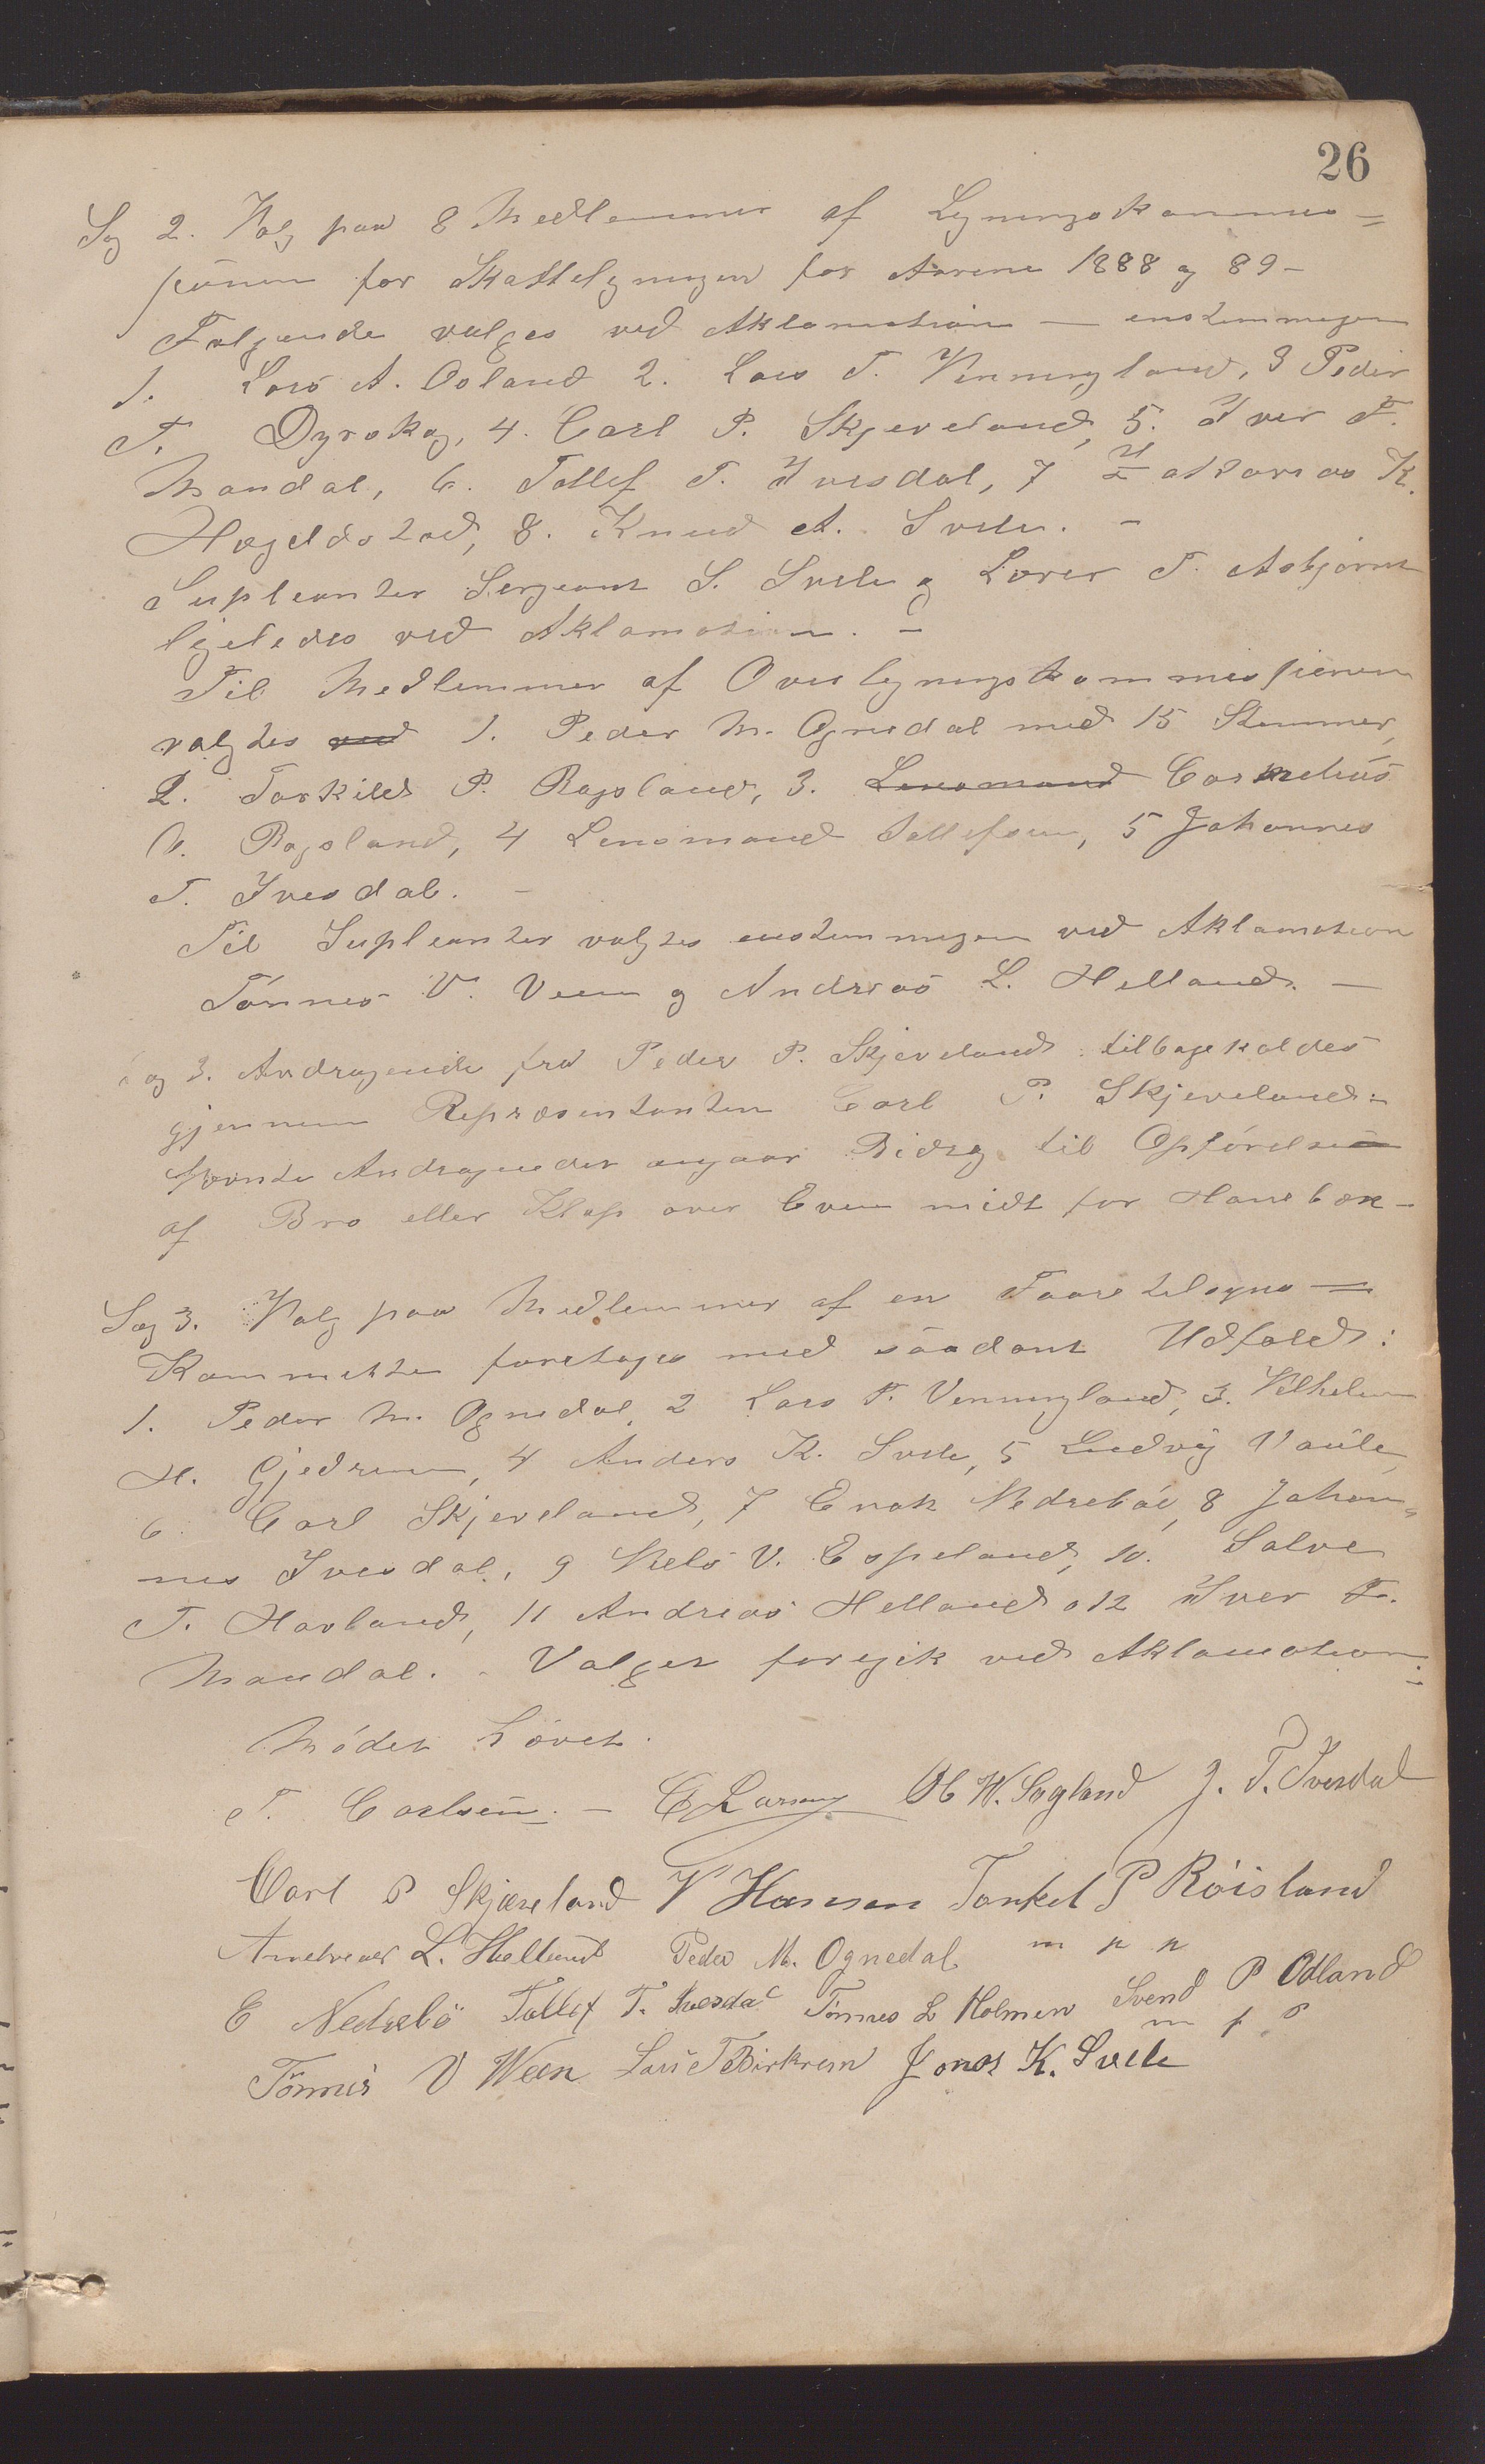 26
Sag 2. Valg paa 8 Medlemmer af Ligningskommis=
sionen for Skatteligningen for Aarene 1888 og 89 -
Følgende valges ved Aklamation — enstemmigen
1. Lars A. Osland 2. Lars T. Venningland, 3 Peder
T. Dyrskog, 4. Carl P. Skjeveland, 5. Iver T.
Mandal, 6. Tollef T. Ivesdal, 7 Zakarias K.
Hægeldstad, 8. Knud A. Svele. -
Supleanter Sergeant S. Svele og Lærer T. Asbjørnt
ligeledes ved Aklamation. -
Til Medlemmer af Overligningskommissionen
valgtes ved 1. Peder M. Ognedal med 15 Stemmer,
2. Torkild P. Røysland, 3. Lensmand Cornelius
Røysland, 4 Lensmand Tollefsen, 5 Johannes
T. Ivesdal. -
Til Supleanter valgtes enstemmigen ved Aklamation
Tønnes V. Veen og Andreas L. Helland. —
3. Andragende fra Peder P. Skjeveland tilbagekaldes
gjennem Repræsentanten Carl P. Skjeveland:
Andragender angaar Bidrag til Opførelse
af Bro eller Klop over Even midt for Hanebæk -
Sag 3. Valg paa Medlemmer af en Faaretilsyns =
Kommitte foretages med saadant Udfald:
1. Peder M. Ognedal, 2 Lars T. Venningland, 3. Vilhelm
H. Gjedrem, 4 Anders K. Svele, 5 Ludvig Vaule,
6 Carl Skjeveland, 7 Enok Nedrebø, 8 Johan=
nes Ivesdal, 9 Nels V. Espeland, 10. Salve
T. Hovland, 11 Andreas Helland o 12 Iver T.
Mandal. - Valget foregik ved Aklamation:
Mødet hævet.
T. Carlsen. - C Larsen O W. Sagland J. T. Ivesdal
Carl P Skjæveland V Hansen Torkel P Röisland
Andreas L. Helland Peder M. Ognedal m p p
E Nedrebö Tollef T. Ivesdal Tönnes L Holmen Svend P Ødland
m p P
Tönnes V Ween Lars T Birkrem Jonas K. Svele